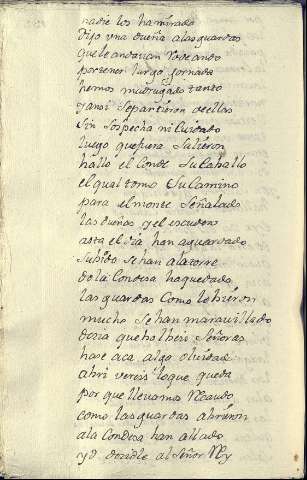 nadie los ha mirado
Dijo vna dueña a las guardas
que le andavan rodeando
por tener larga jornada
hemos madrugado tanto
y ansi se partieron de ellas
sin sospecha ni Cuidado
luego que fuera salieron
hallo el Conde su Caballo
el qual tomo su Camino
para el monte señalado
las dueñas y el escudero
asta el dia han aguardado
subido se han a la torre
do la Condesa ha quedado
las guardas como lo vieron
mucho se han maravillado
desia que bolbeis señoras
hase aca algo olvidado
abri vereis lo que queda
por que llevamos Recaudo
como las guardas abrieron
a la Condesa han allado
yd dezidle al señor Rey